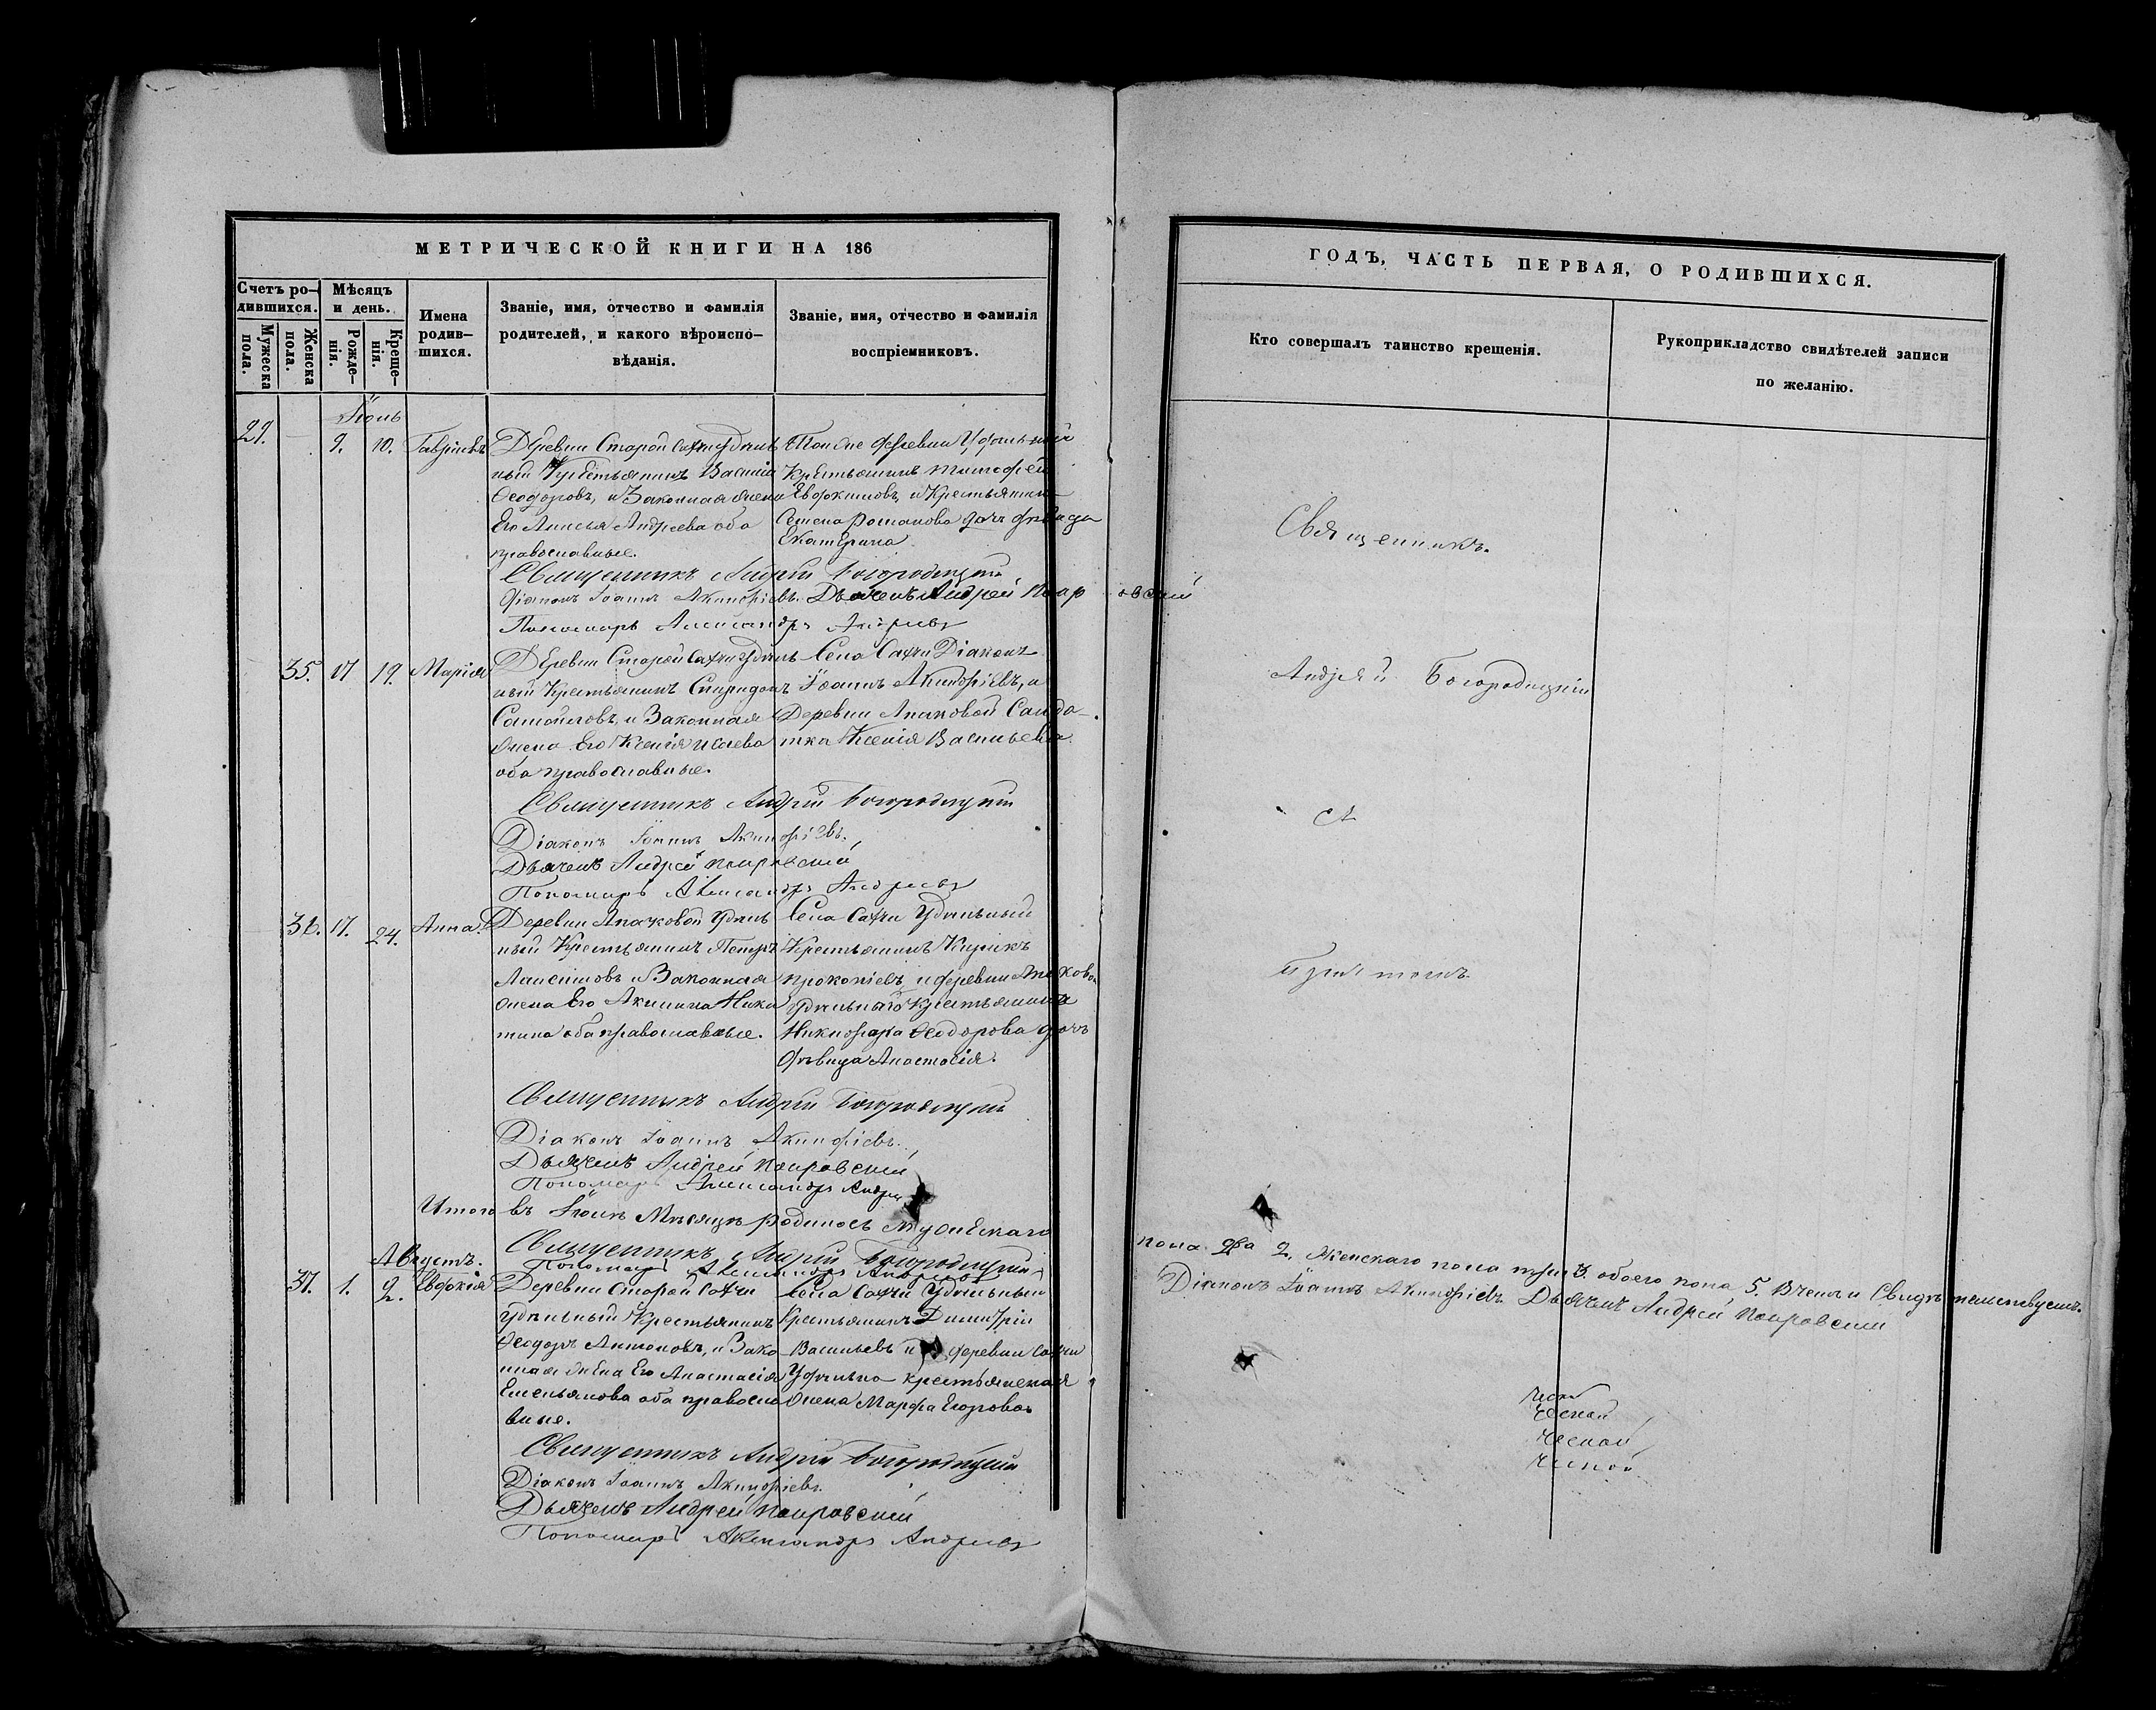 МЕТРИЧЕСКОЙ КНИГИ НА 186
Счетъ ро-
дившихся.
Мужеска
пола.
Женска
пола.
Мѣсяцъ
и день.
Рожде-
нія.
Креще-
нія.
Имена
родив-
шихся.
Званіе, имя, отчество и фамилія
родителей, и какого вѣроиспо-
вѣданія.
Званіе, имя, отчество и фамилія
воспріемниковъ.
Іюль
29. 9. 10. Гавріилъ
Деревни Старой Сахчи Удѣль
ный Крестьянинъ Василій
Ѳеодоровъ, и Законная жена
Его Андреева оба
православные.
Той же деревни Удѣльный
Крестьянинъ Тимофей
Евдокимовъ, и Крестьянина
Семена Романова дочь дѣвица
Екатерина
Священникъ Андрей Богородицкій
Діаконъ Іоаннъ Акинфіевъ. Дьячекъ Андрей Покровский
Пономарь Александръ Андреевъ
35. 17 19. Марія
Деревни Старой Сахчи Удѣль
ный Крестьянинъ Спиридонъ
Самойловъ, и Законная
жена Его Ксенія Исаева
оба православные.
Села Сахчи Діаконъ
Іоаннъ Акинфіевъ, и
Деревни Апаковой Солда-
тка Ксенія Васильева
Священникъ Андрей Богородицкій
Діаконъ Іоаннъ Акинфіевъ.
Дьячекъ Андрей Покровский
Пономарь Александръ Андреевъ
36. 17. 24. Анна.
Деревни Апаковой Удѣль
ный Крестьянинъ Петръ
и Законная
жена Его Акилина Ники
тина оба православные.
Села Сахчи Удѣльный
Крестьянинъ Кирикъ
Прокопіевъ, и деревни Апаковой
Удѣльнаго Крестьянина
Никифора Ѳеодорова дочь
дѣвица Анастасія.
Священникъ Андрей Богородицкій
Діаконъ Іоаннъ Акинфіевъ.
Дьячекъ Андрей Покровский
Пономарь Александръ Андреевъ
Итого въ Іюлѣ Мѣсяцѣ родилось Мужескаго
Священникъ Андрей Богородицкій
Пономарь Александръ Андреевъ
Августъ.
37. 1. 2. Евдокія
Деревни Старой Сахчи
Удѣльный Крестьянинъ
Ѳеодоръ Антоновъ, и Зако
нная жена Его Анастасія
Емельянова оба правосла
вные.
Села Сахчи Удѣльный
Крестьянинъ Димитрій
Васильевъ и деревни Сахчи
Удѣльно крестьянская
жена Марфа Егорова
Священникъ Андрей Богородицкій
Діаконъ Іоаннъ Акинфіевъ.
Дьячекъ Андрей Покровский
Пономарь Александръ Андреевъ
ГОДЪ, ЧАСТЬ ПЕРВАЯ, О РОДИВШИХСЯ.
Кто совершалъ таинство крещенія.
Рукоприкладство свидѣтелей записи
по желанію.
Священникъ.
Андрей Богородицкій
Съ
Причтомъ
пола два 2. Женскаго пола три 3. обоего пола 5. В чемъ и Свидѣтельствуемъ.
Діаконъ Іоаннъ Акинфіевъ. Дьячекъ Андрей Покровский